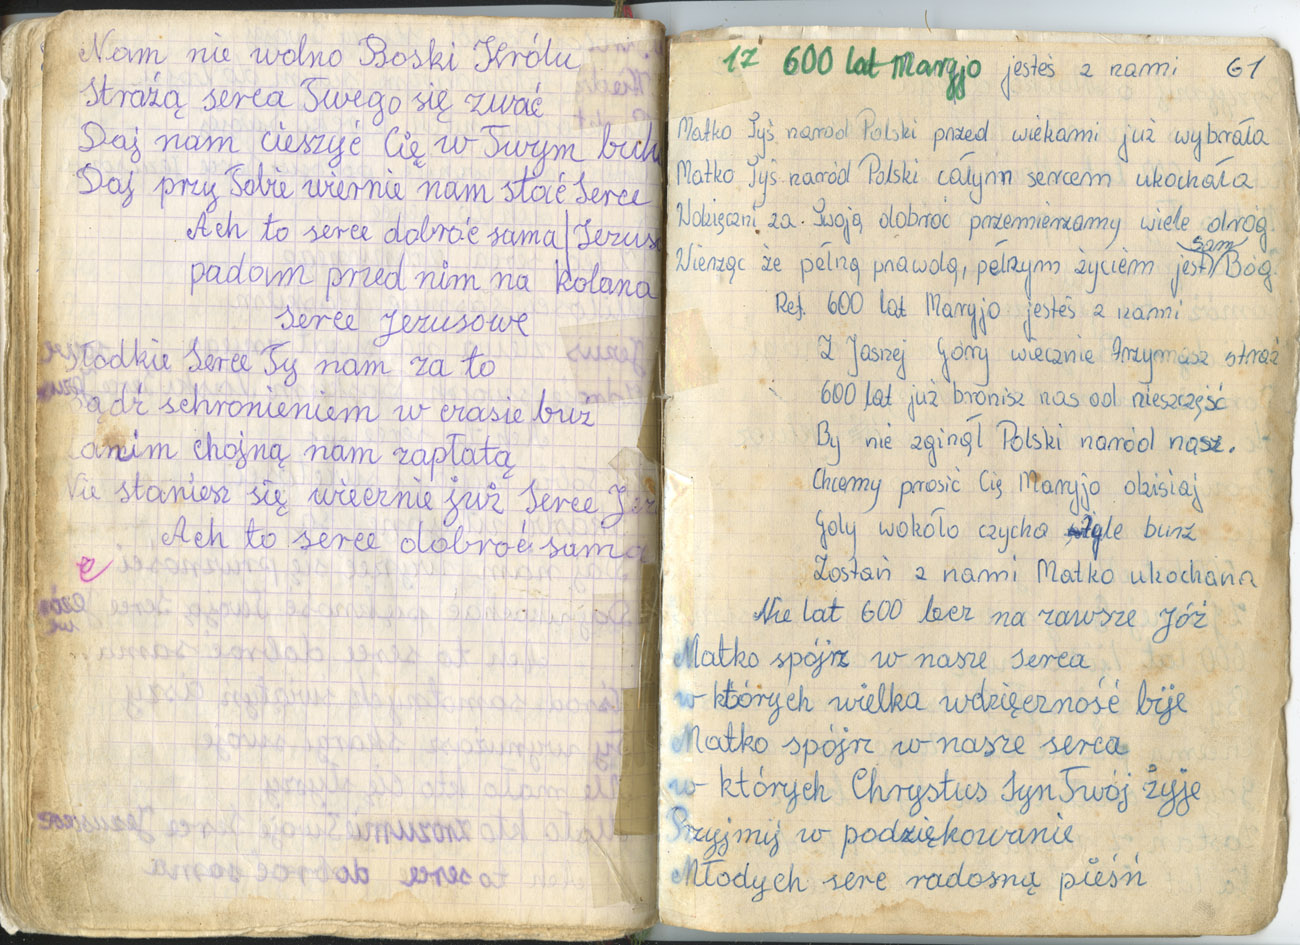 Nam nie wolno Boski Królu
Strażą serca Twego się zwać
Daj nam cieszyć Cię w Twym
Daj przy Tobie wiernie nam stać Serce
Ach to serce dobroć sama Jezus
padam przed nim na kolana
Serce Jezusowe
słodkie Serce Ty nam za to
Bądź schronieniem w czasie burz
anim chojną nam zapłatą
Nie staniesz się wiecznie już Serce Jez
Ach to serce dobroć sama
17 600 lat Maryjo jesteś z nami 61
Matko Tyś naród Polski przed wiekami już wybrała
Matko Tyś naród Polski całym sercem ukochała
Wdzięczni za Twoją dobroć przemierzamy wiele dróg.
Wierząc że pełną prawdą, pełnym życiem jest sam Bóg.
Ref. 600 lat Maryjo jesteś z nami
Z Jasnej Góry wiecznie trzymasz straż
600 lat już bronisz nas od nieszczęść
By nie zginął Polski naród nasz.
Chcemy prosić Cię Maryjo dzisiaj
Gdy wokoło czycha tyle burz
Zostań z nami Matko ukochana
Nie lat 600 lecz na zawsze Jóż
Matko spójrz w nasze serca
w których wielka wdzięczność bije
Matko spójrz w nasze serca
w których Chrystus Syn Twój żyje
Przyjmij w podziękowanie
Młodych serc radosną pieśń